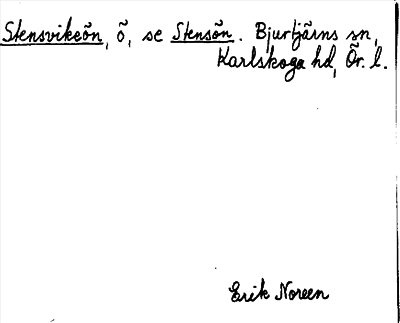 Stensvikeön, ö, se Stensön. Bjurtjärns sn,
Karlskoga hd, Ör. l.
Erik Noreen